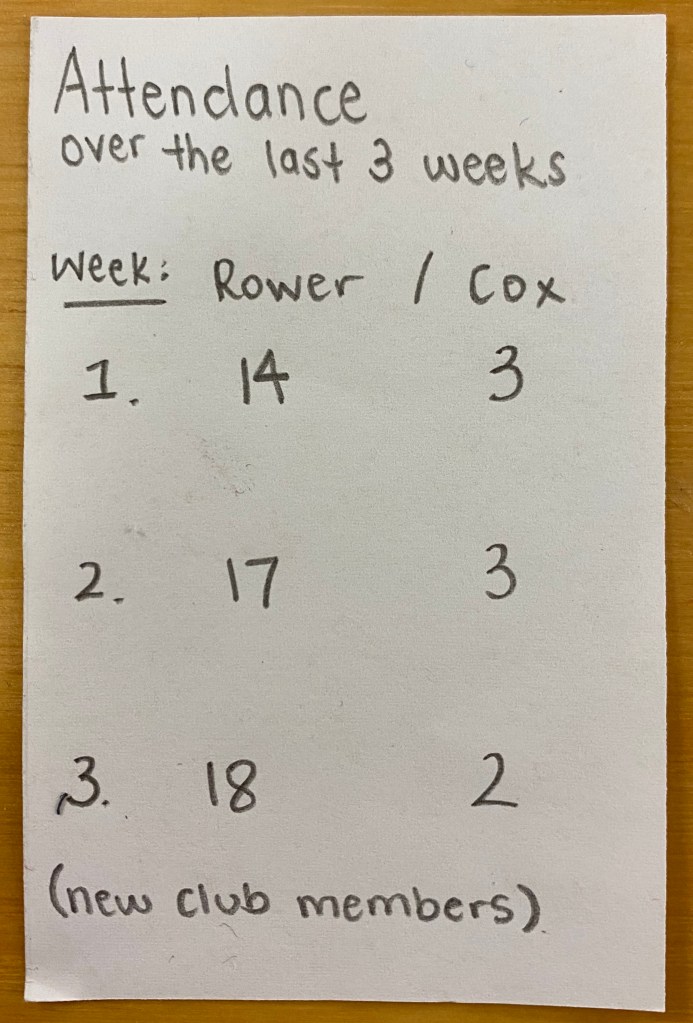 Attendance
over the last 3 weeks
Week: Rower / Cox
1. 14 3
2. 17 3
3. 18 2
(new club members)